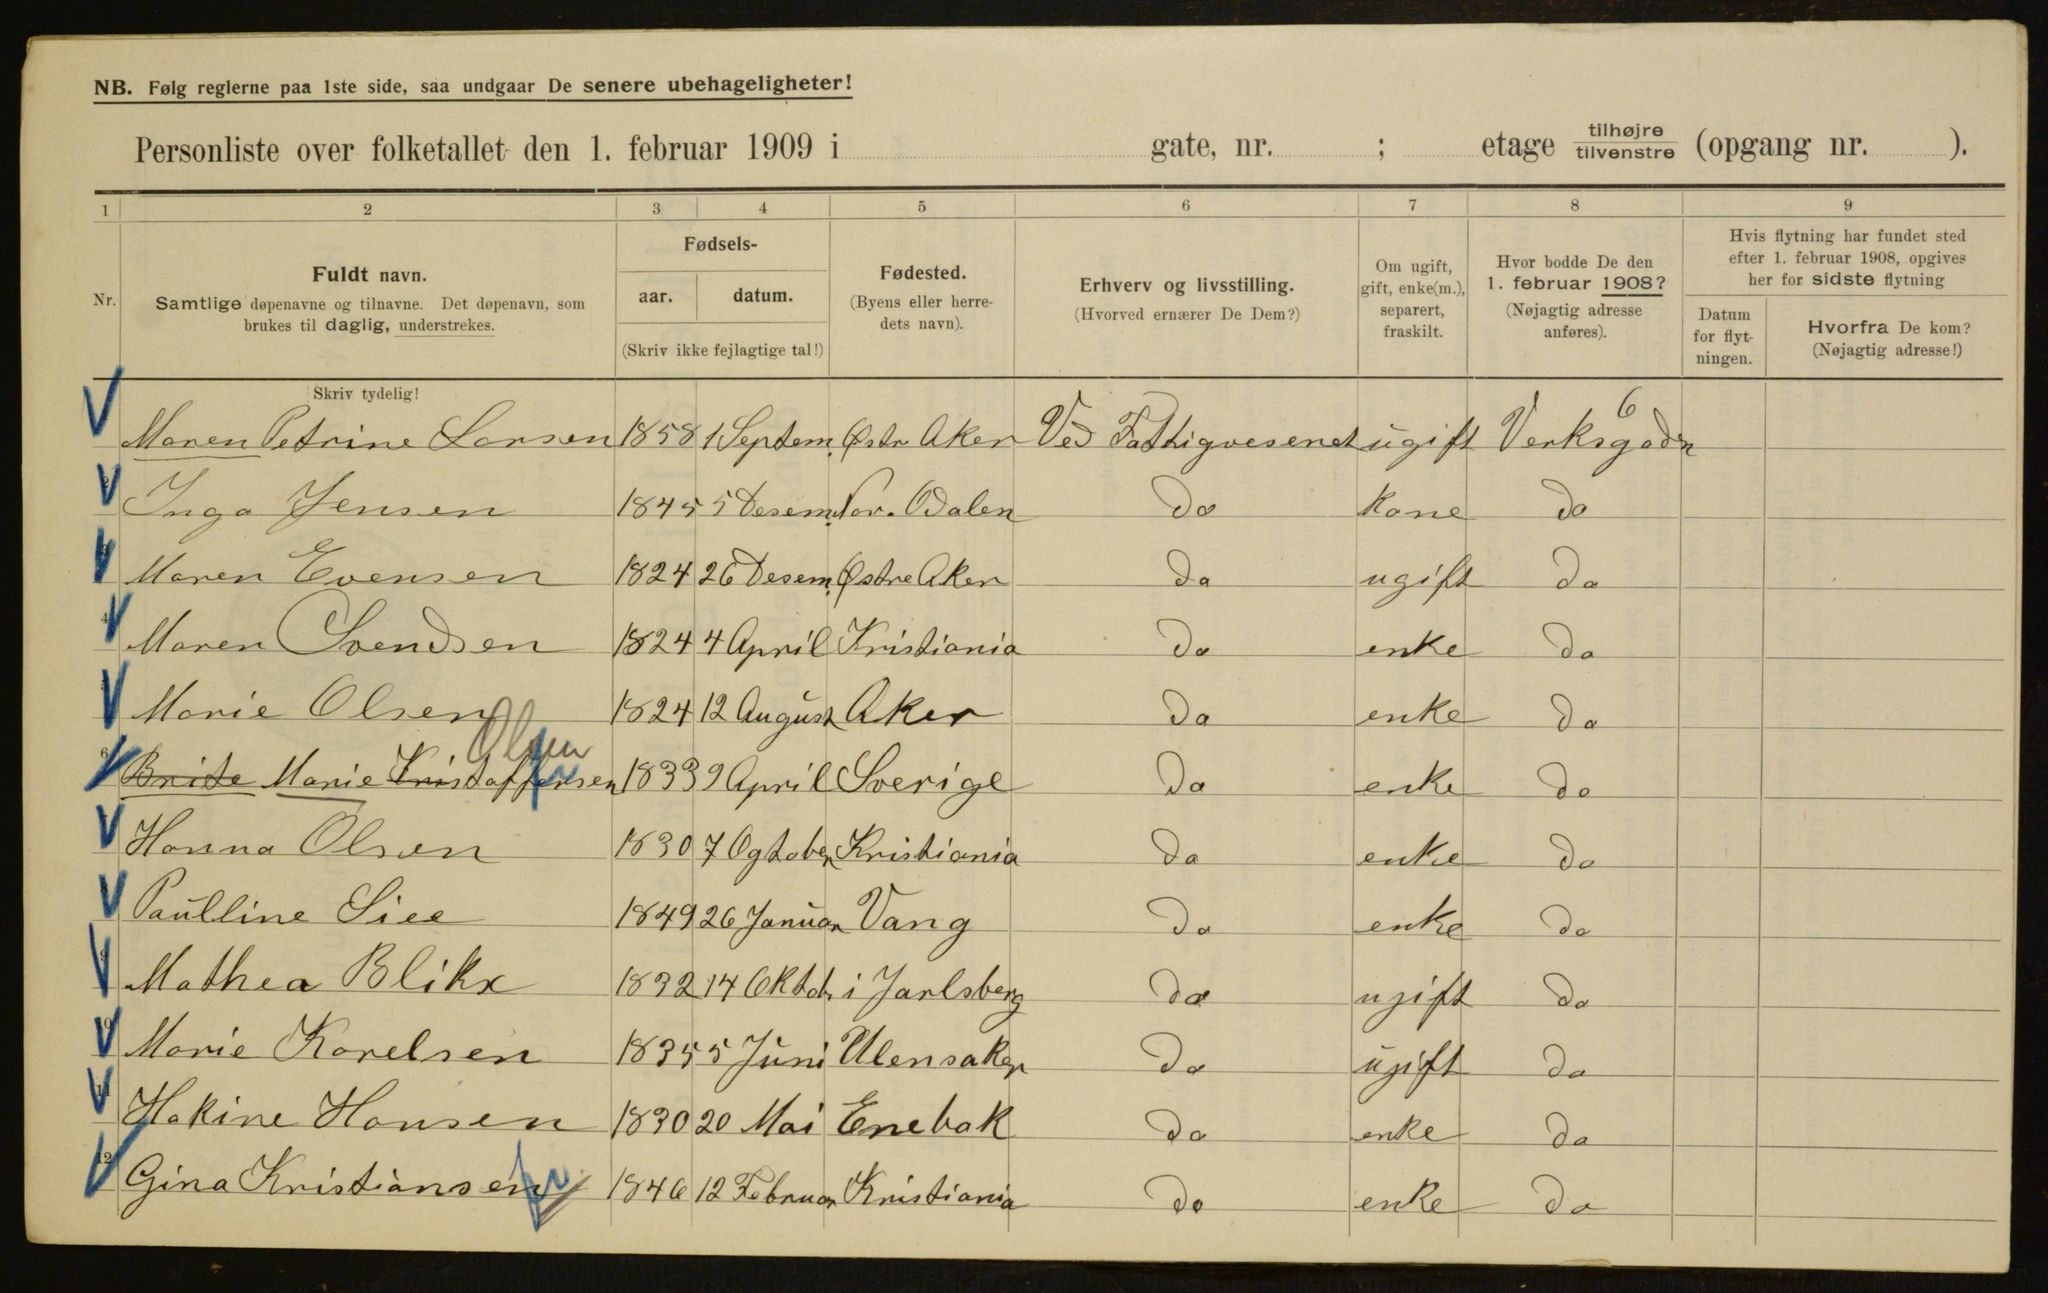 NB. Følg reglerne paa 1ste side, saa undgaar De senere ubehageligheter!
Personliste over folketallet den 1. februar 1909 i gate, nr. ; etage tilhøjre tilvenstre (opgang nr. ).
1 2 3 4 5 6 7 8 9
Nr.
Fuldt navn.
Samtlige døpenavne og tilnavne. Det døpenavn, som
brukes til daglig, understrekes.
Fødsels-
aar. datum.
(Skriv ikke fejlagtige tal!)
Fødested.
(Byens eller herre-
dets navn).
Erhverv og livsstilling.
(Hvorved ernærer De Dem?)
Om ugift,
gift, enke(m.),
separert,
fraskilt.
Hvor bodde De den
1. februar 1908?
(Nøjagtig adresse
anføres).
Hvis flytning har fundet sted
efter 1. februar 1908, opgives
her for sidste flytning
Datum
for flyt-
ningen.
Hvorfra De kom?
(Nøjagtig adresse!)
Skriv tydelig!
6
Maren Petrine Larsen 1858 1 Septem. Østr Aker Ved Fattigvesenet ugift Verksgaden
2 Inga Jensen 1845 5 Desem. Nor. Odalen Do kone Do
3 Maren Evensen 1824 26 Desem. Østre Aker Do ugift Do
4 Maren Svendsen 1824 4 April Kristiania Do enke Do
5 Marie Olsen 1824 12 August Aker Do enke Do
Olsen
6 Brite Marie Kristoffersen 1833 9 April Sverige Do enke Do
Hanna Olsen 1830 7 Ogtober Kristiania Do enke Do
Paulline Siee 1849 26 Januar Vang Do enke Do
9 Mathea Blikx 1832 14 Oktob. i Jarlsberg Do ugift Do
10 Marie Karelsen 1835 5 Juni Ulensaker Do ugift Do
11 Hakine Hansen 1830 20 Mai Enebak Do enke Do
12 Gina Kristiansen 1846 12 Februar Kristiania Do enke Do